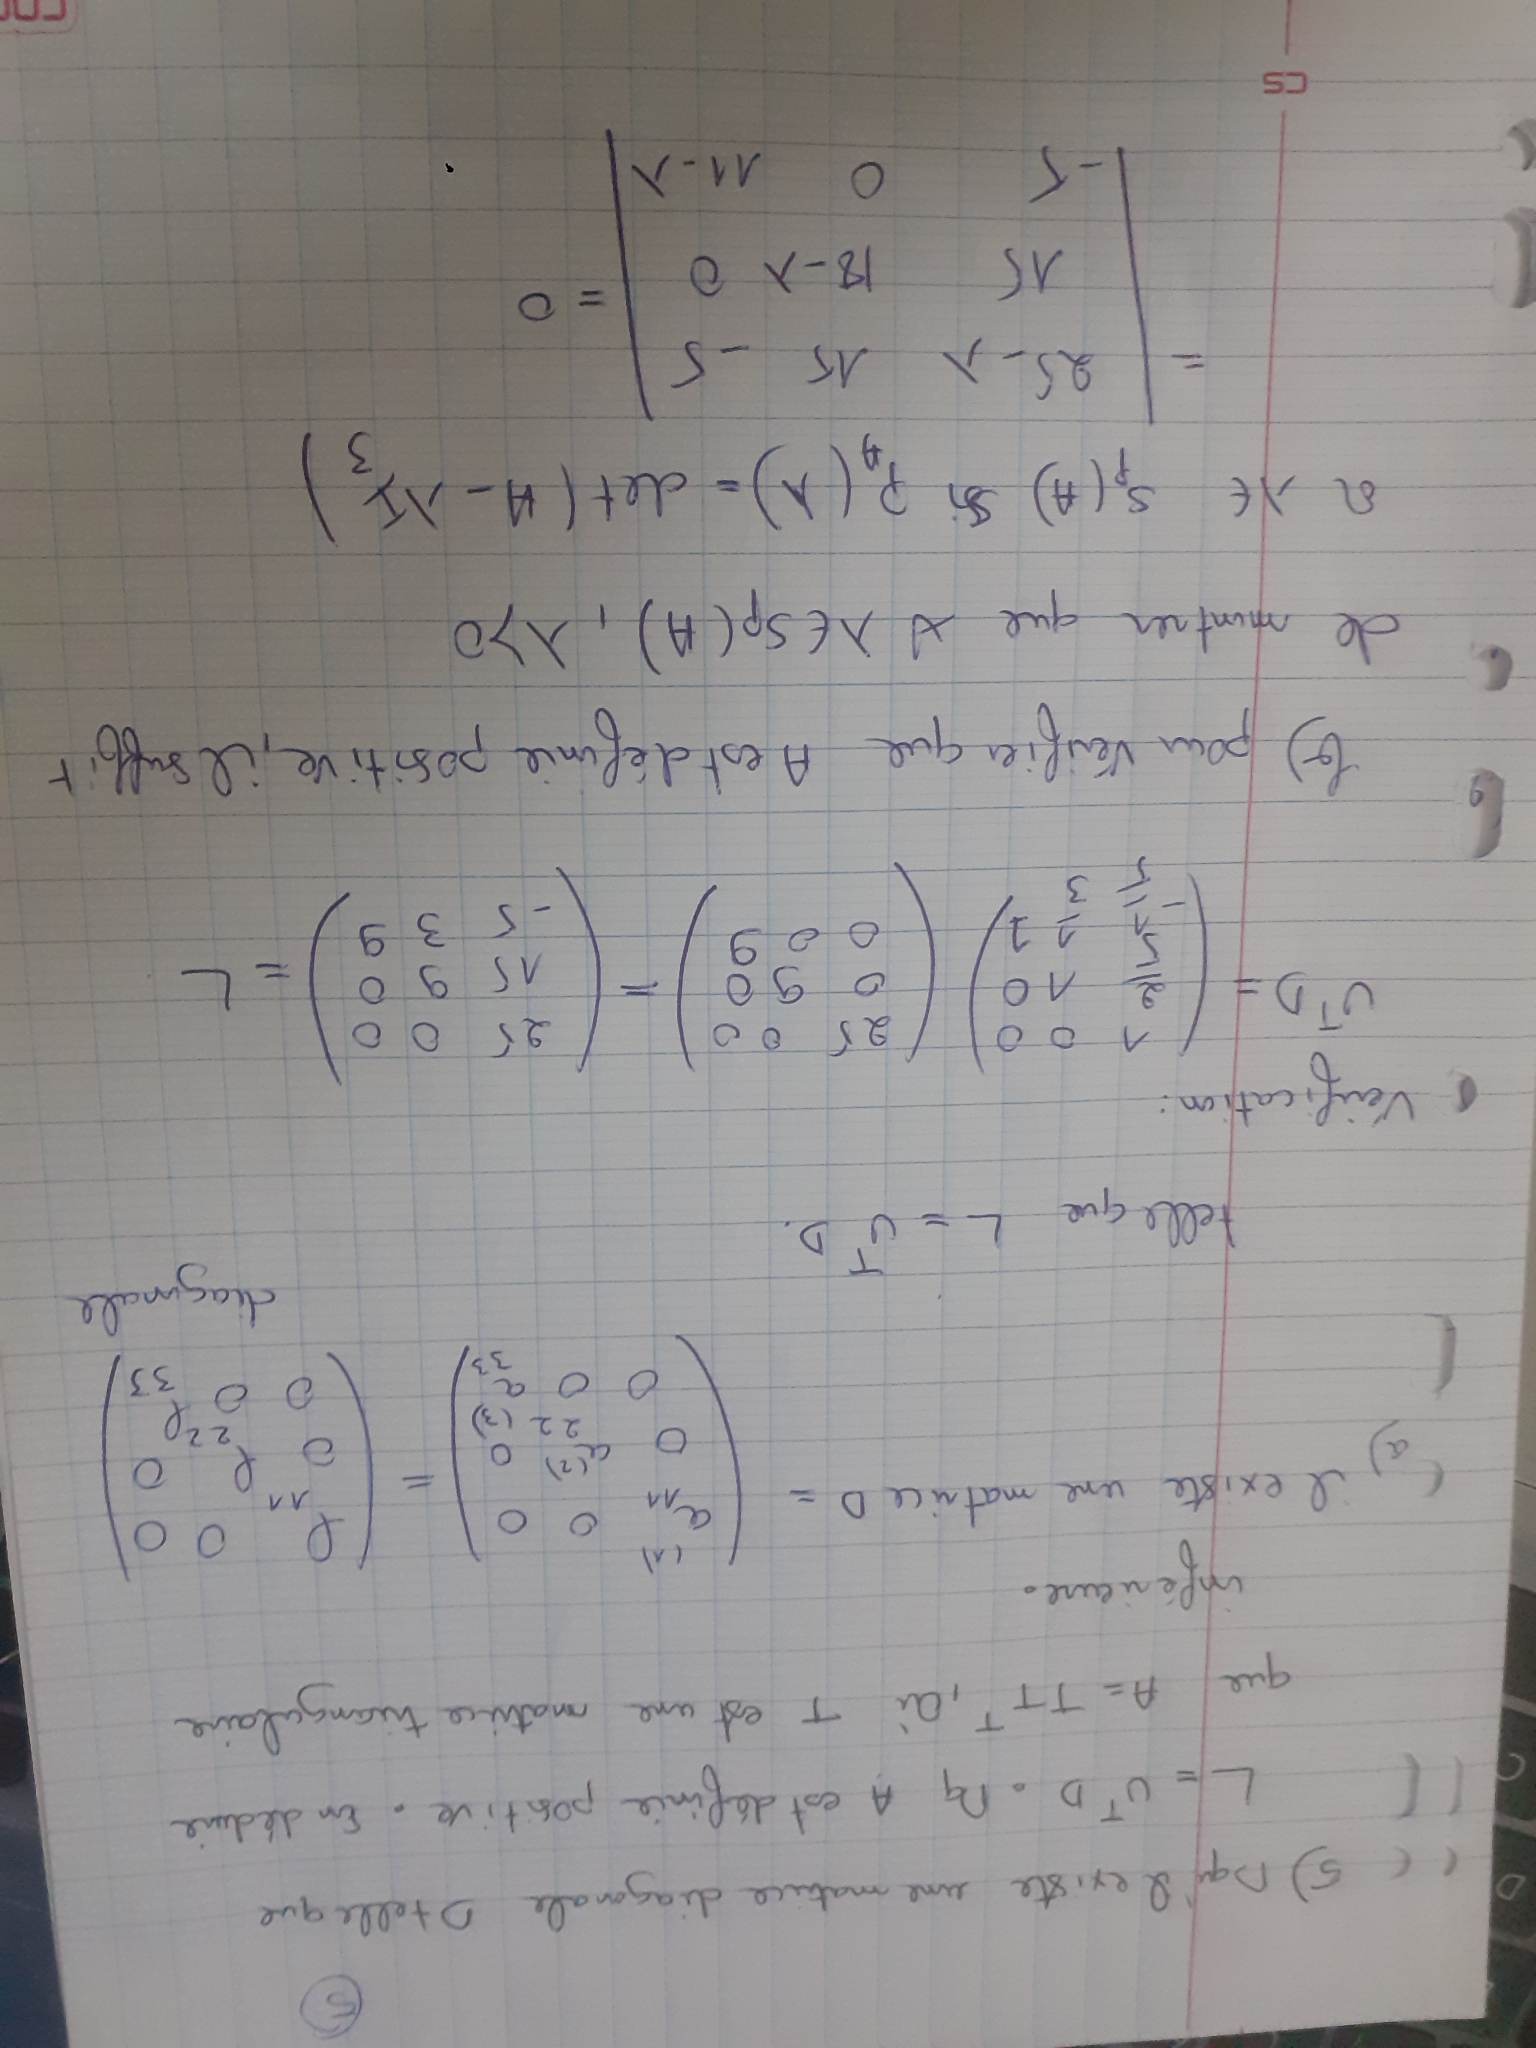 5
5) Dqu'il existe une matrice diagonale D telle que
L = U^T D . Dq A est définie positive. En déduire
que A = T T^T, où T est une matrice triangulaire
inférieure.
a) il existe une matrice D = ( a_11^(1) 0 0 ; 0 a_22^(2) 0 ; 0 0 a_33^(3) ) = ( l_11 0 0 ; 0 l_22 0 ; 0 0 l_33 )
diagonale
telle que L = U^T D.
Vérification:
U^T D = ( 1 0 0 ; 2/5 1 0 ; -1/5 1/3 1 ) ( 25 0 0 ; 0 9 0 ; 0 0 9 ) = ( 25 0 0 ; 15 9 0 ; -5 3 9 ) = L
b) pour vérifier que A est définie positive, il suffit
de montrer que ∀ λ ∈ Sp(A), λ > 0
or λ ∈ Sp(A) si P_A(λ) = det(A - λI_3)
= | 25-λ 15 -5 ; 15 18-λ 0 ; -5 0 11-λ | = 0
CS